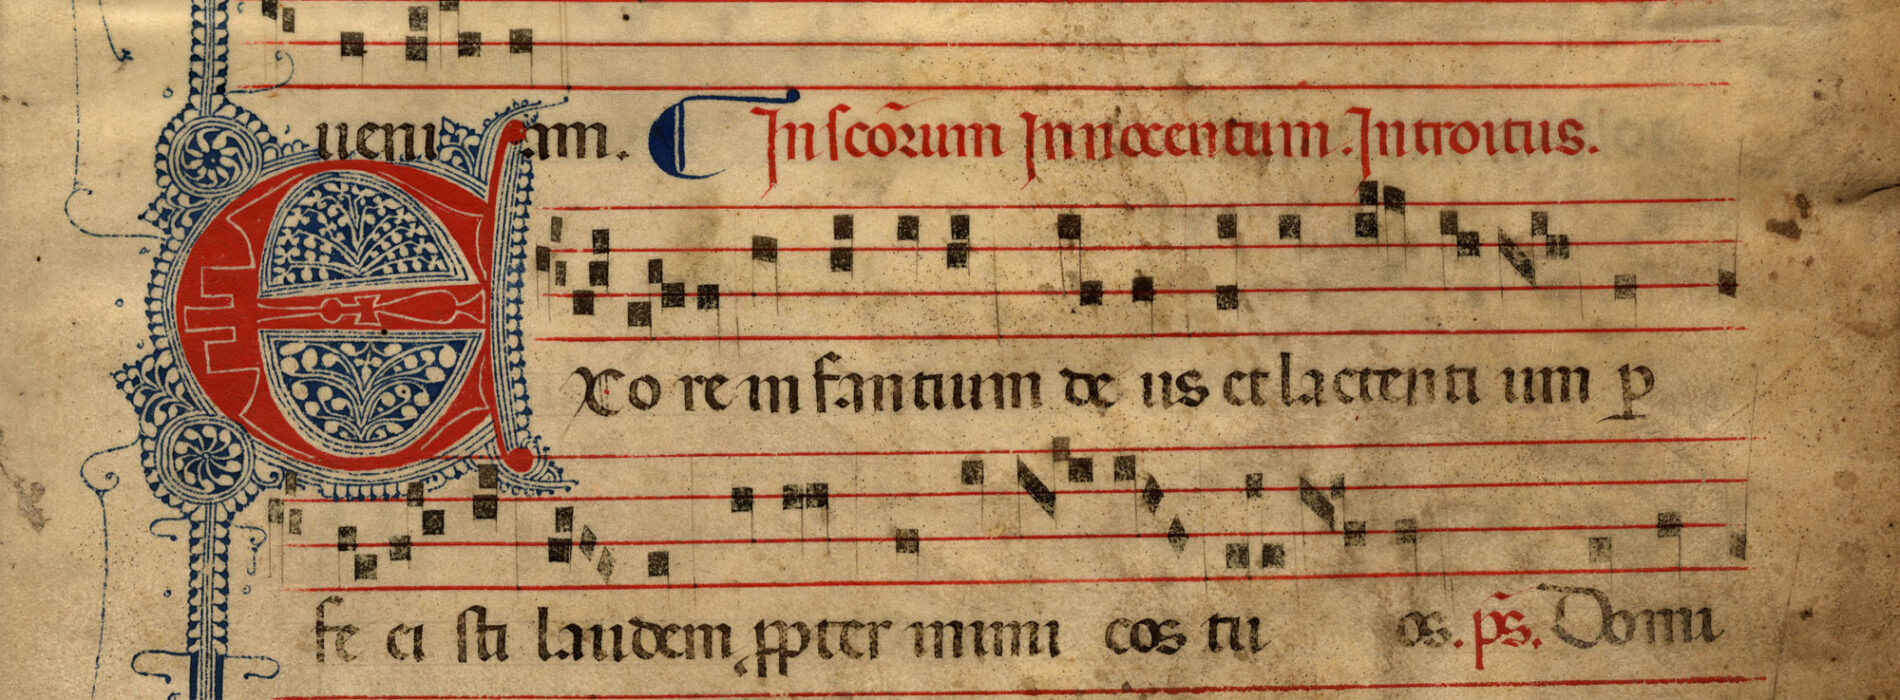 ueniam. In scōrum Innocentum. Introitus.
EX o re in fantium de us et lactenti um p̱
fe ci sti laudem ppter inimi cos tu os. ps̄. Domi